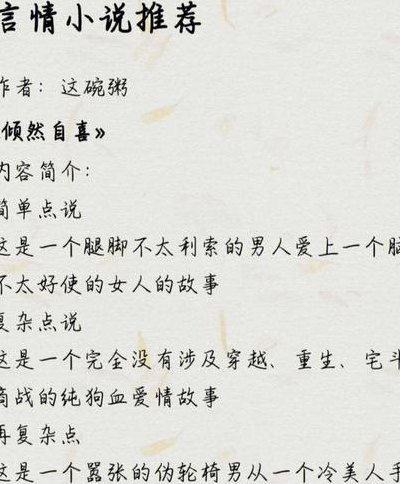 言情小说推荐
作者：这碗粥
倾然自喜》
内容简介：
简单点说
这是一个腿脚不太利索的男人爱上一个脑
不太好使的女人的故事
复杂点说
这是一个完全没有涉及穿越、重生、宅斗
商战的纯狗血爱情故事
再复杂点
这是一个嚣张的伪轮椅男从一个冷美人手